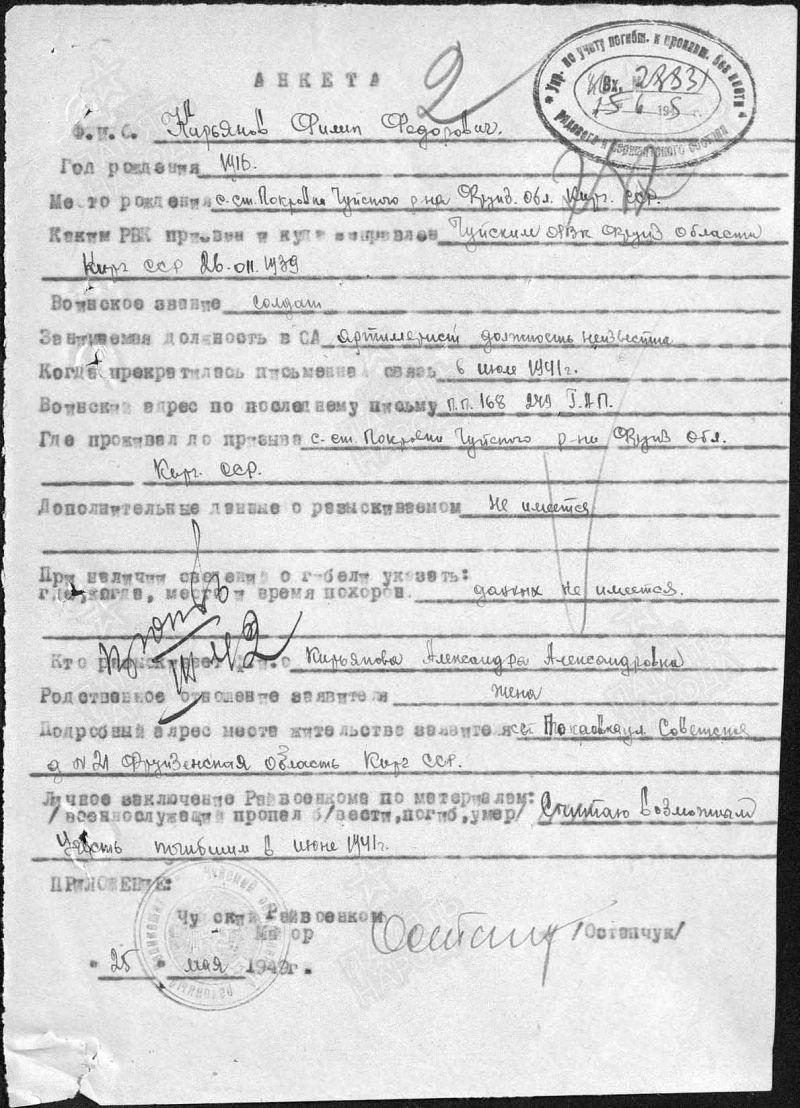 АНКЕТА
2
Упр. по учету погибш. и пропавш. без вести
рядового и сержантского состава
Вх. 28831
15 6 195 г.
Ф.И.О. Кирьянов Филип Федорович.
Год рождения 1916.
Место рождения с. ст. Покровка Чуйского р-на Фрунз. Обл. Кирг. ССР.
Каким РВК призван и куда направлен Чуйским РВК Фрунз области
Кирг ССР 26.011.1939
Воинское звание солдат
Занимаемая должность в СА артилерист должность неизвестна
Когда прекратилась письменная связь в июле 1941г.
Воинский адрес по последнему письму П.П. 168 249 ГАП.
Где проживал до призыва с. ст. Покровка Чуйского р-на Фрунз Обл.
Кирг. ССР.
Дополнительные данные о разыскиваемом Не имеется
При наличии сведений о гибели указать:
где, когда, место и время похорон. данных не имеется.
Кто разыскивает Ф.И.О Кирьянова Александра Александровна
Родственное отношение заявителя жена
Подробный адрес места жительства заявителя ст Советская
д N 21 Фрунзенская область Кирг ССР.
Личное заключение Райвоенкома по материалам:
/военнослужащий пропал б/вести, погиб, умер/ Считаю возможным
учесть погибшим в июне 1941г.
ПРИЛОЖЕНИЕ:
Чуйский Райвоенком
Майор /Остапчук/
"25" мая 1949г.